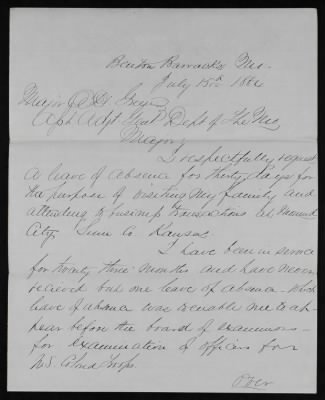 Benton Barracks Mo.
July 15th 1864
Major
Asst Adjt Genl Dept of the Mo,
Major,
I respectfully request
A leave of absence for thirty days for
the purpose of visiting my family and
attending to business transactions at Mound
City Linn Co. Kansas.
I have been in service
for twenty three months and have never
recieved but one leave of absence which
leave of absence was to enable me to ap-
pear before the board of examiners
for examination of officers for
U.S. Colored Troops.
Over